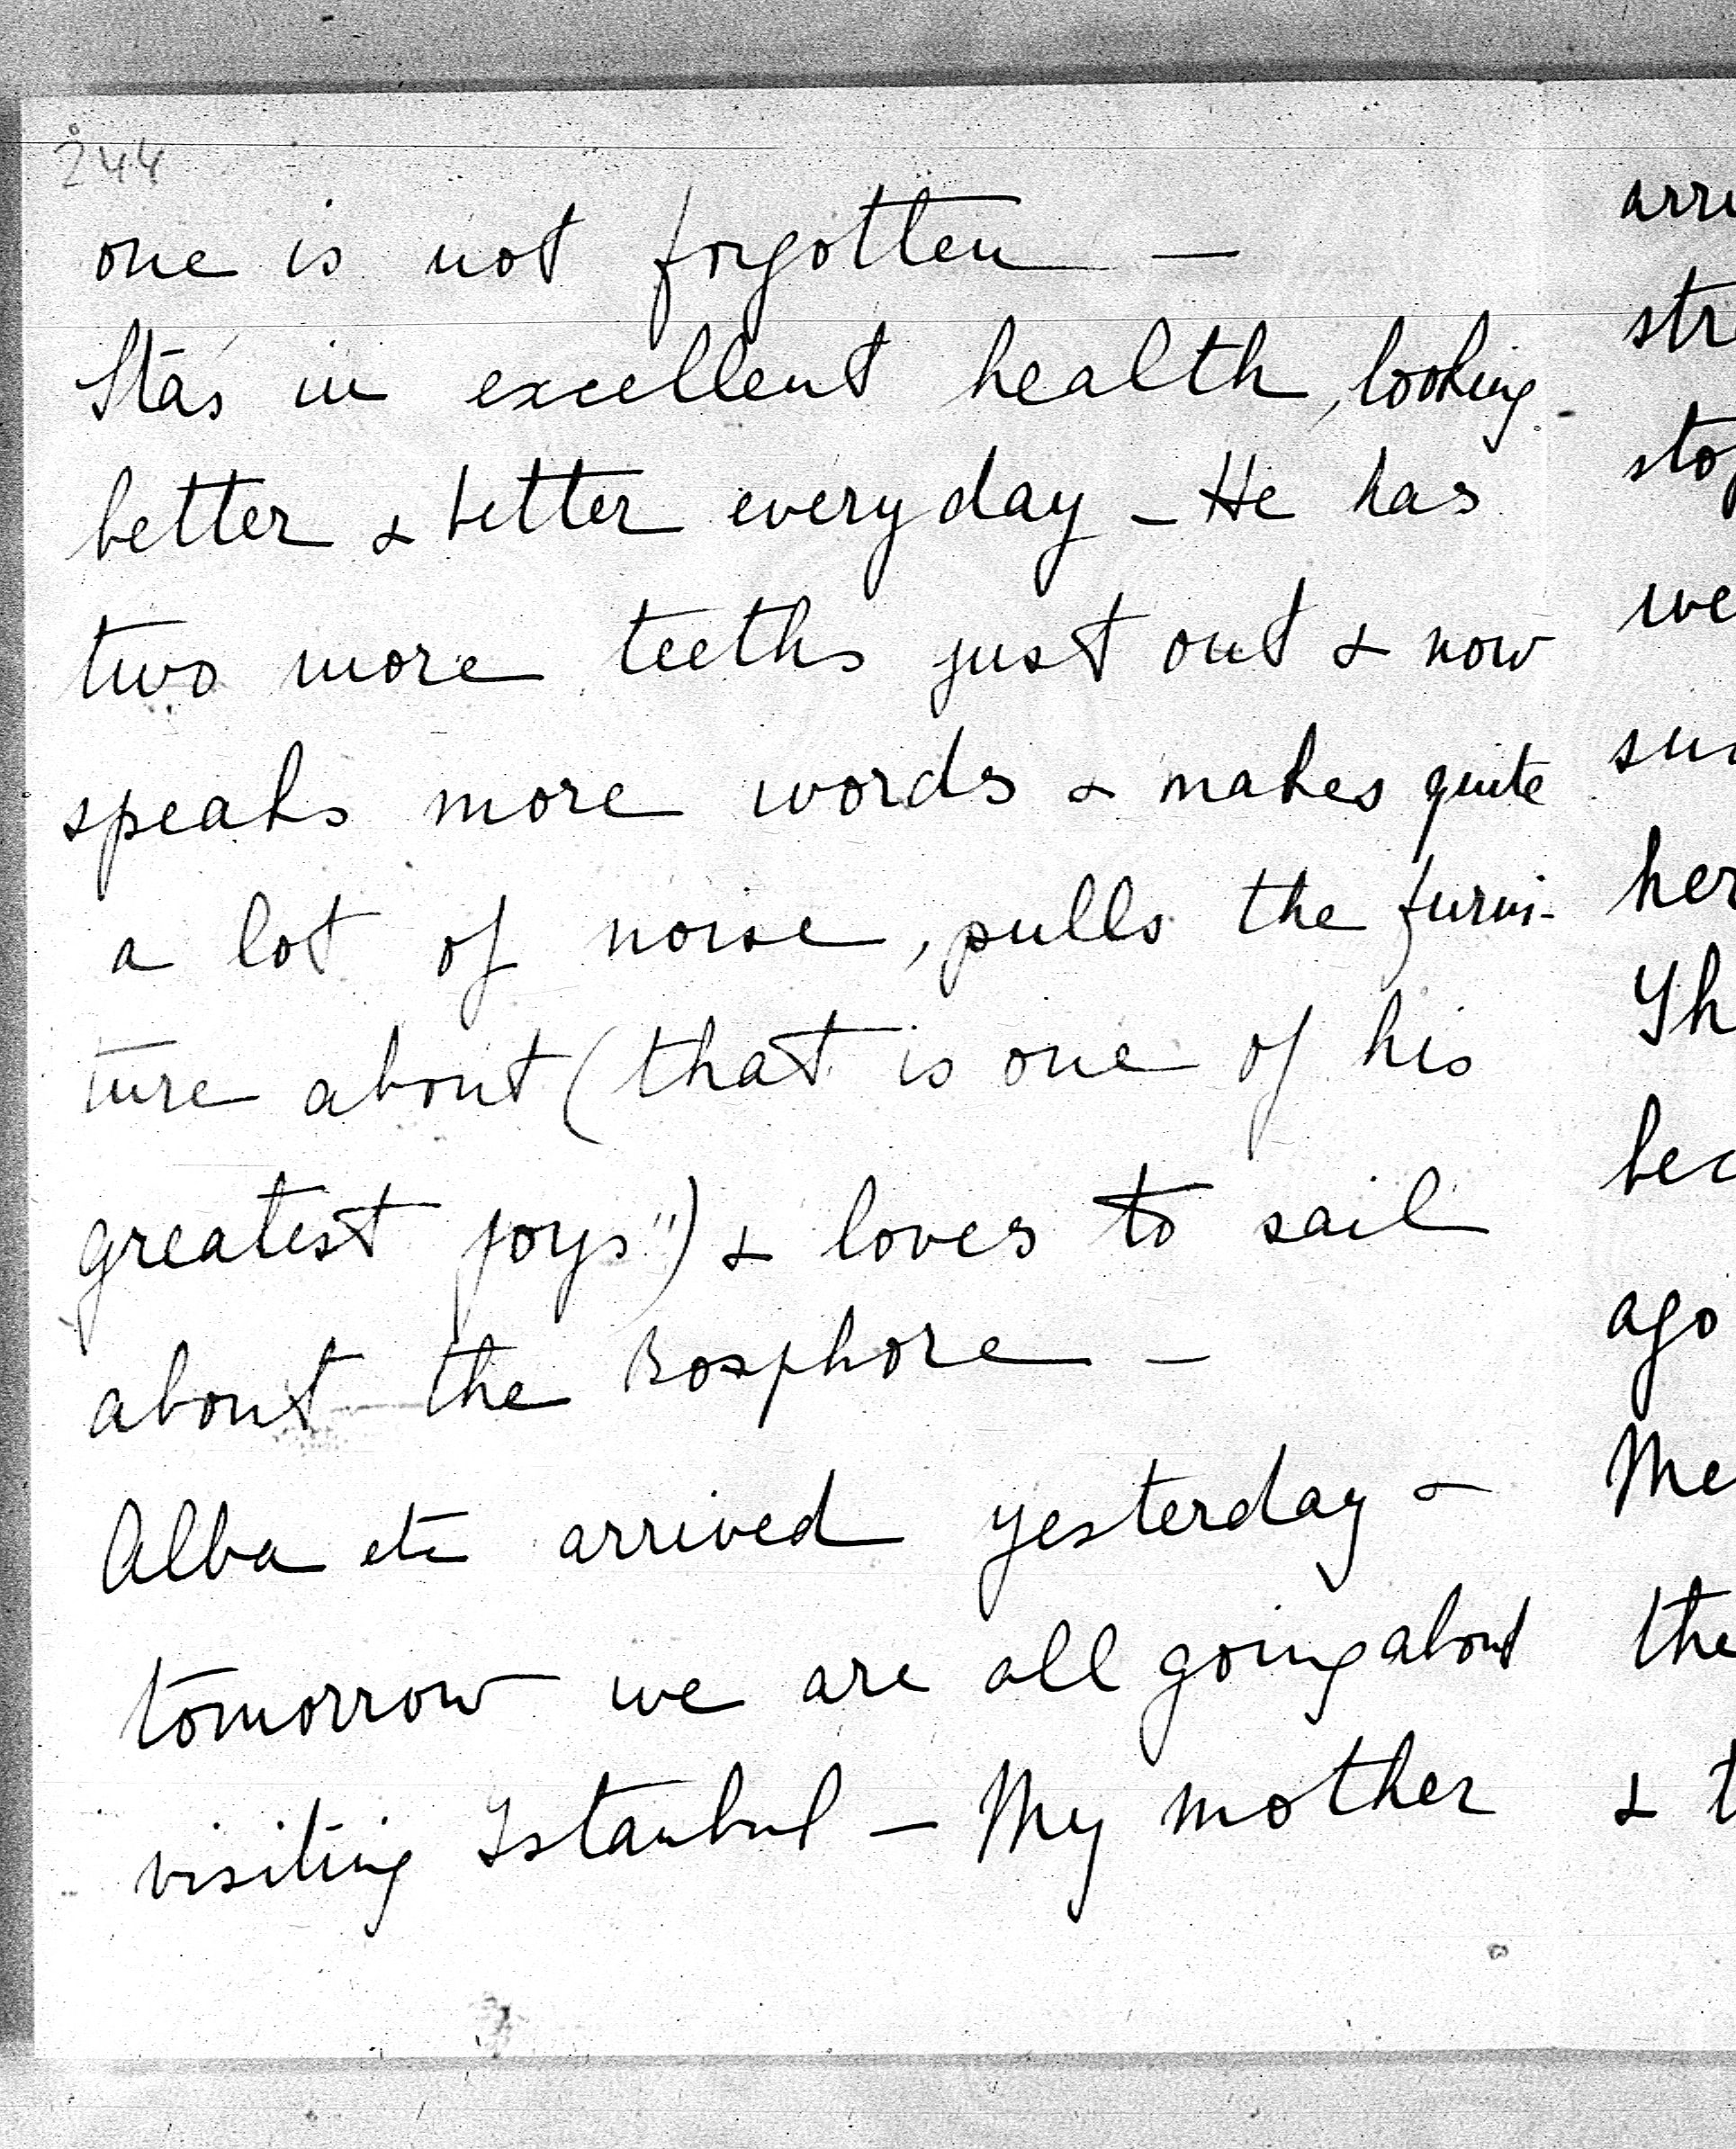 244
one is not forgotten —
Staś in excellent health, looking
better & better every day – He has
two more teeths just out & now
speaks more words & makes quite
a lot of noise, pulls the furni-
ture about (that is one of his
greatest joys") & loves to sail
about the Bosphore —
Alba etc arrived yesterday &
tomorrow we are all going about
visiting Istanbul — My mother
arri
str
sto
we
her
Th
bec
ago
Me
the
& t